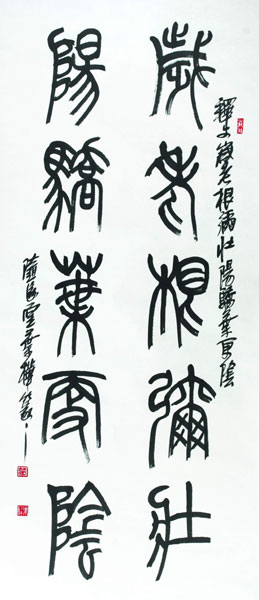 釋文歲老根彌壯陽驕葉更陰
歲老根彌壯
陽驕葉更陰